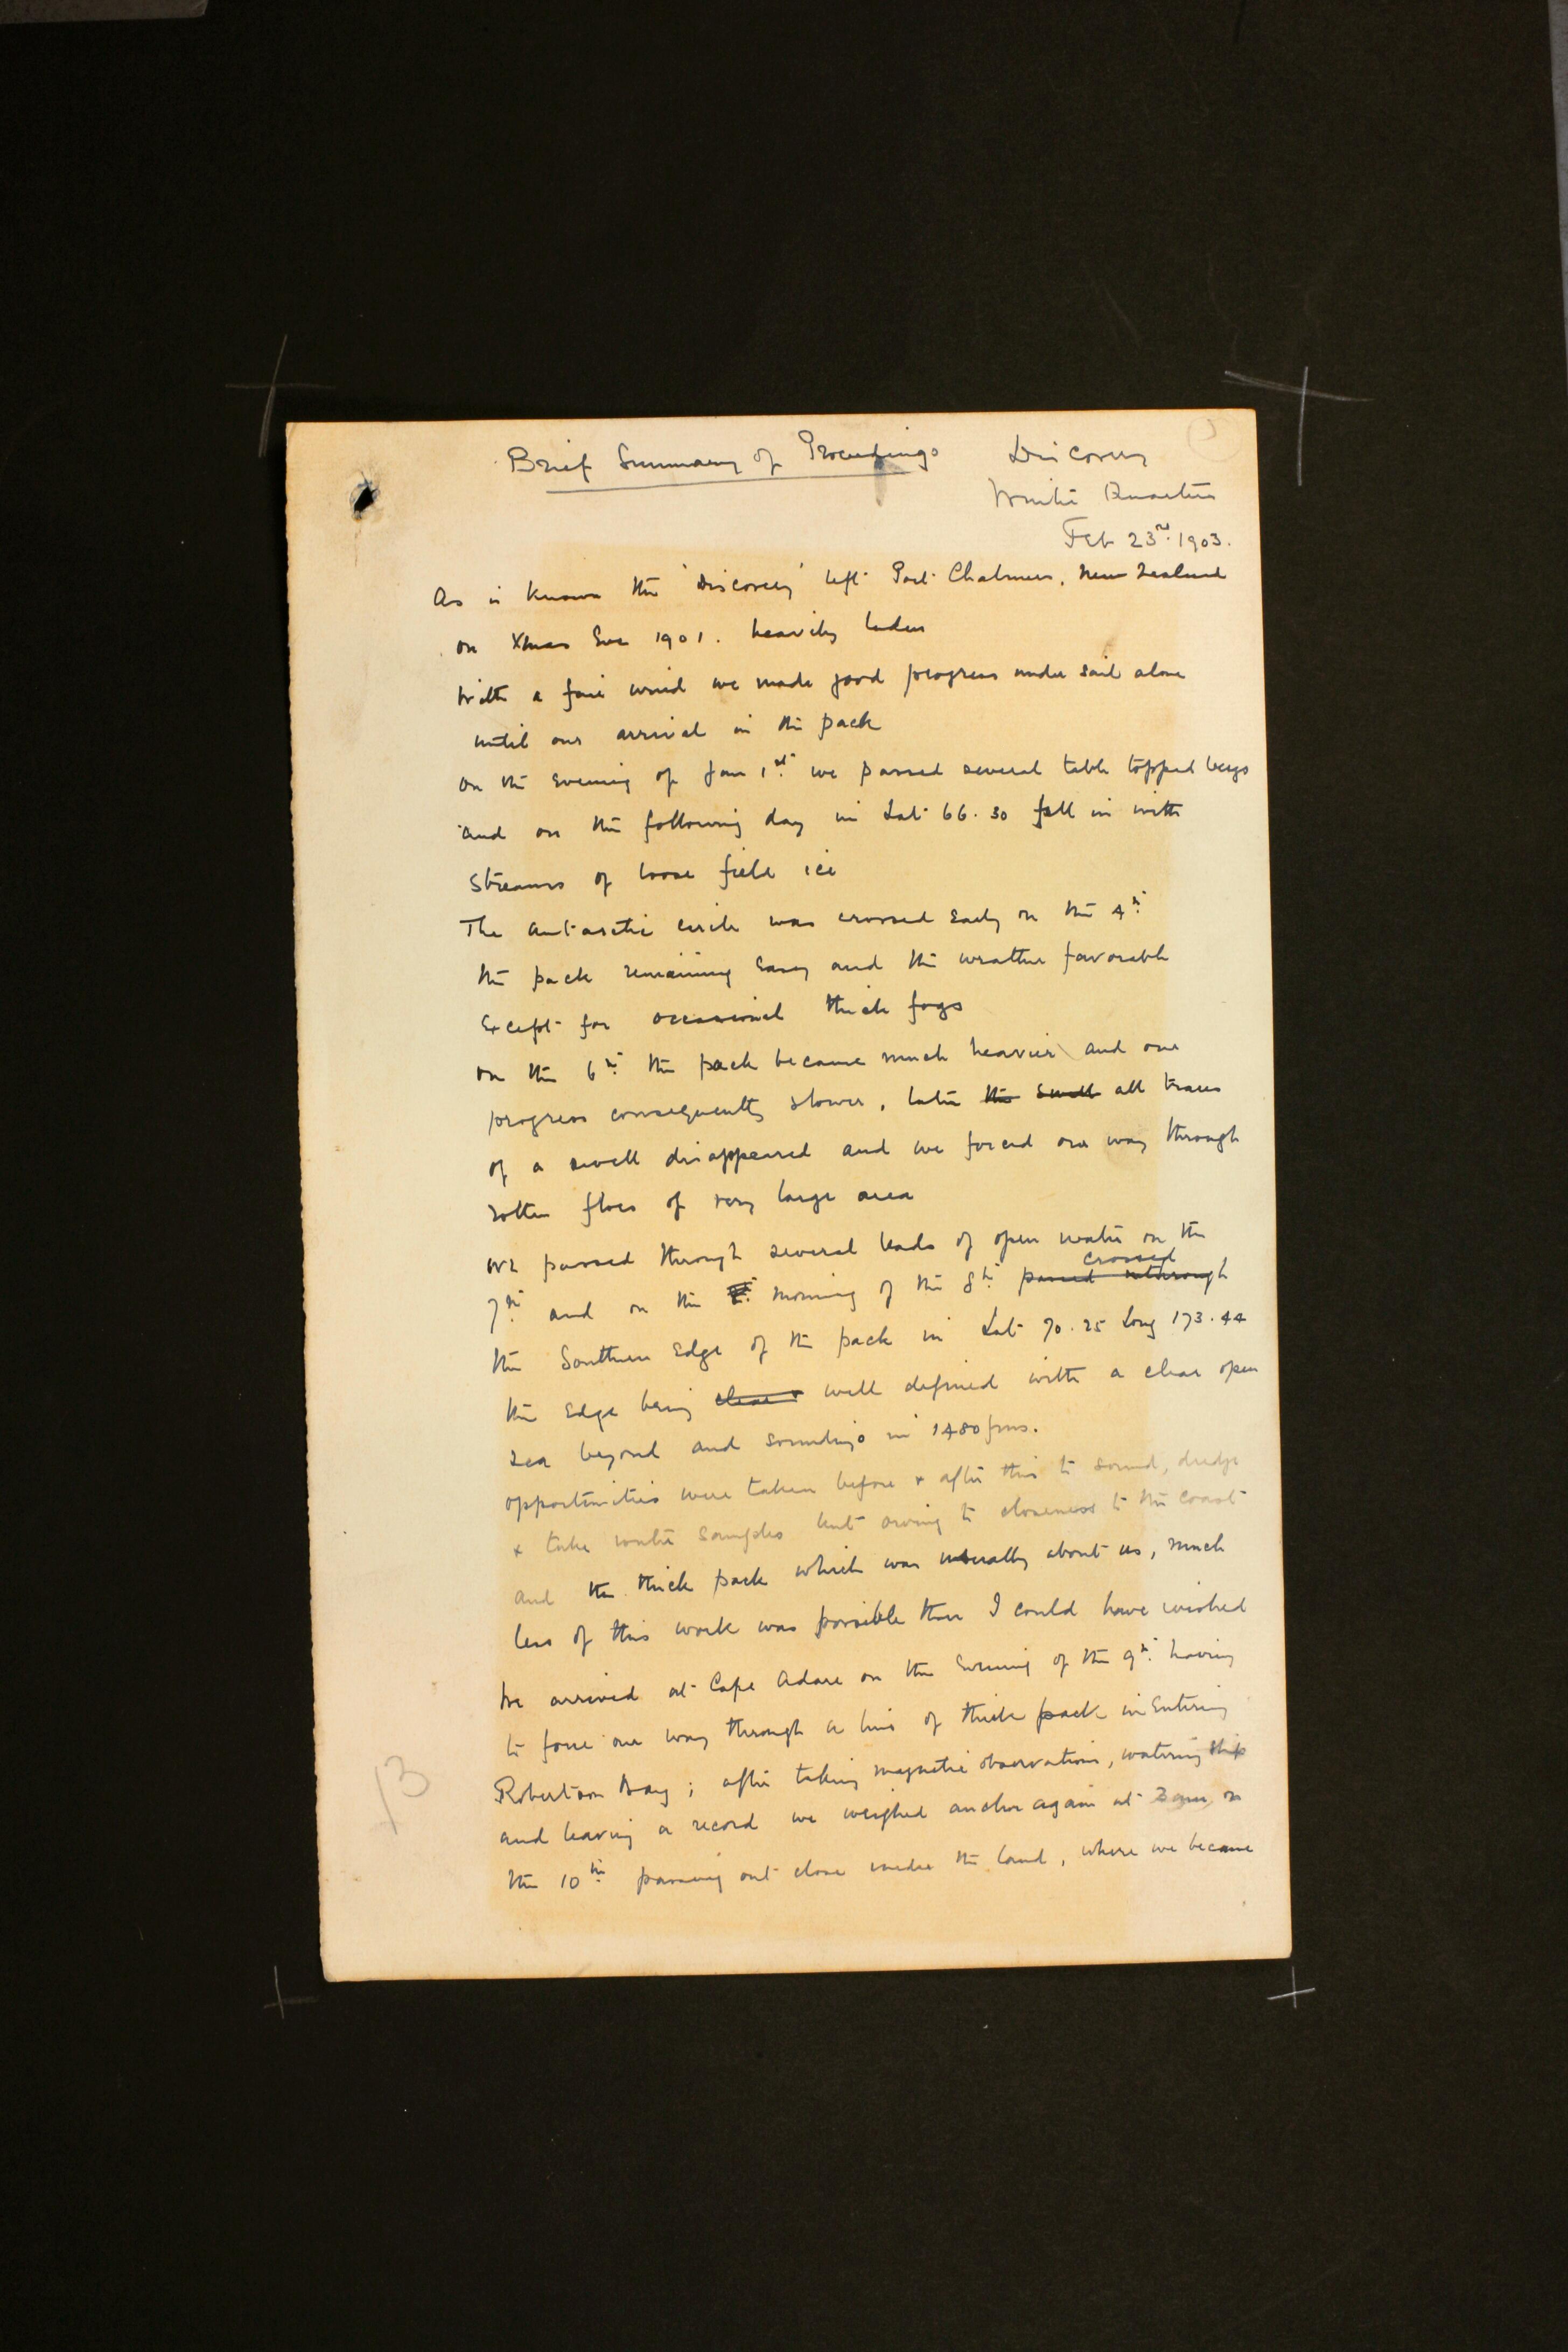 Brief Summary of Proceedings Discovery
Winter Quarters
Feb 23rd. 1903.
As is known the 'Discovery' left Port Chalmers, New Zealand
on Xmas Eve 1901. heavily laden
With a fair wind we made good progress under sail alone
until our arrival in the pack
On the evening of Jan 1st. we passed several table topped bergs
and on the following day in Lat 66.30 fell in with
streams of loose field ice
The antarctic circle was crossed early on the 4th.
the pack remaining easy and the weather favorable
except for occasional thick fogs
On the 6th. the pack became much heavier and our
progress consequently slower, later the swell all traces
of a swell disappeared and we forced our way through
rotten floes of very large area
We passed through several leads of open water on the
crossed
7th. and on the morning of the 8th. passed through
the Southern Edge of the pack in Lat 70.25 Long 173.44
the edge being clear & well defined with a clear open
sea beyond and soundings in 1480 fms.
opportunities were taken before & after this to sound, dredge
& take water samples but owing to closeness to the coast
and the thick pack which was usually about us, much
less of this work was possible than I could have wished
We arrived at Cape Adare on the evening of the 9th. having
to force our way through a line of thick pack in entering
Robertson Bay; after taking magnetic observations, watering ship
and leaving a record we weighed anchor again at 3 am on
the 10th. passing out close under the land, where we became
13